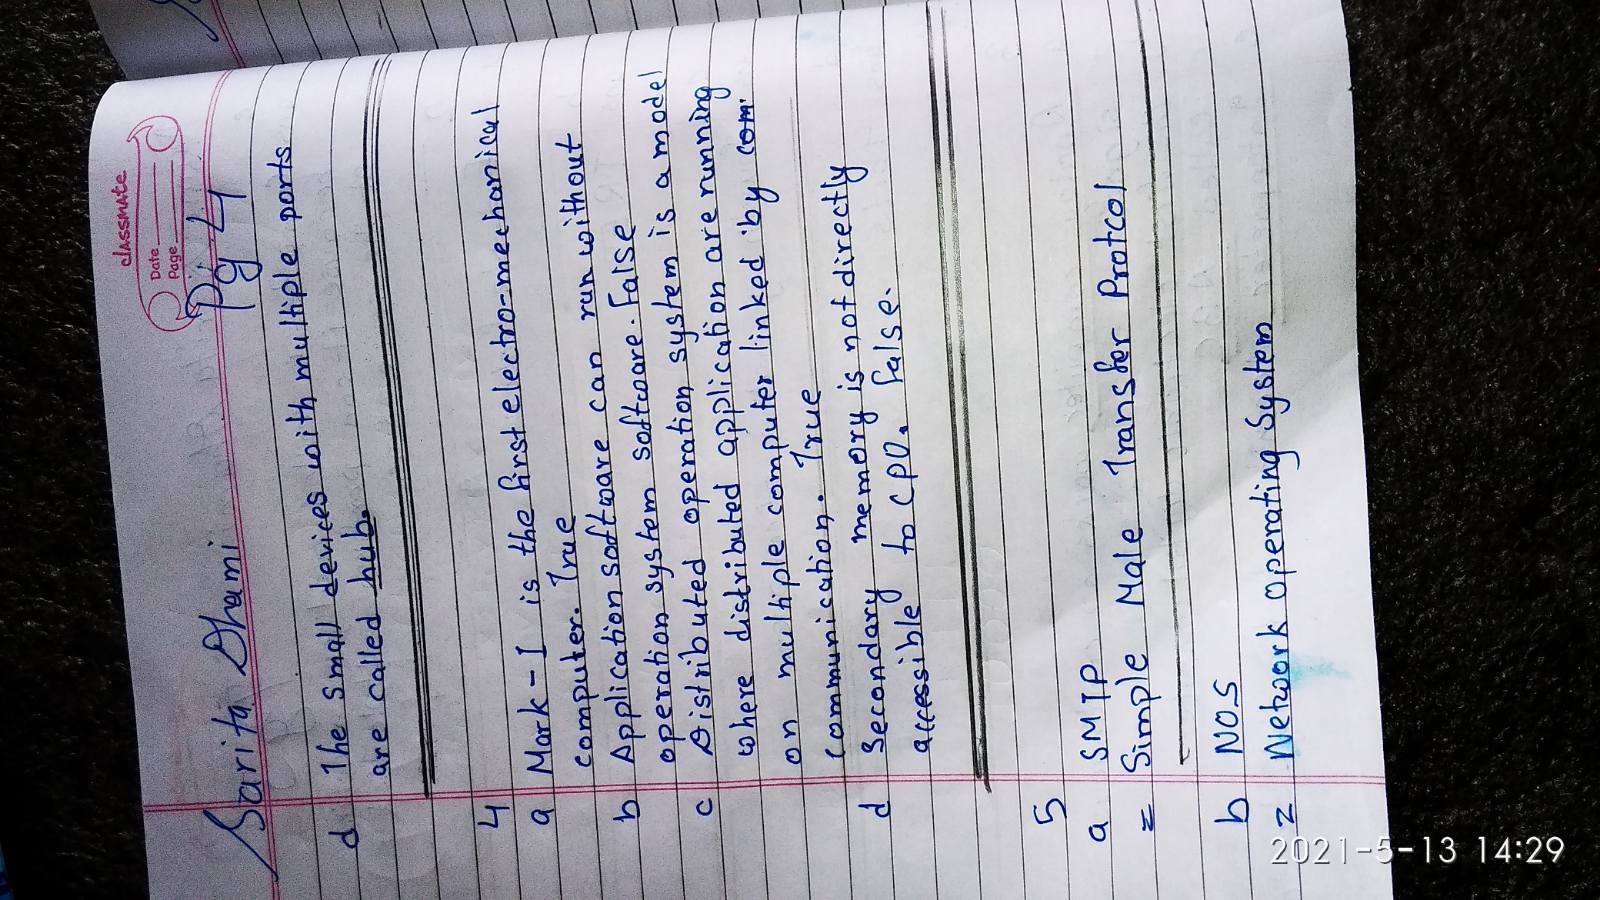 classmate
Date
Page
Sarita Dhami
Pg 4
d The small devices with multiple ports
are called hub.
4
a Mark-I is the first electro-mechanical
computer. True
b Application software can run without
operation system software. False
c Distributed operation system is a model
where distributed application are running
on multiple computer linked by com
communication. True
d Secondary memory is not directly
accessible to CPU. False.
5
a SMTP
= Simple Male Transfer Protcol
b NOS
= Network operating System
2021-5-13 14:29